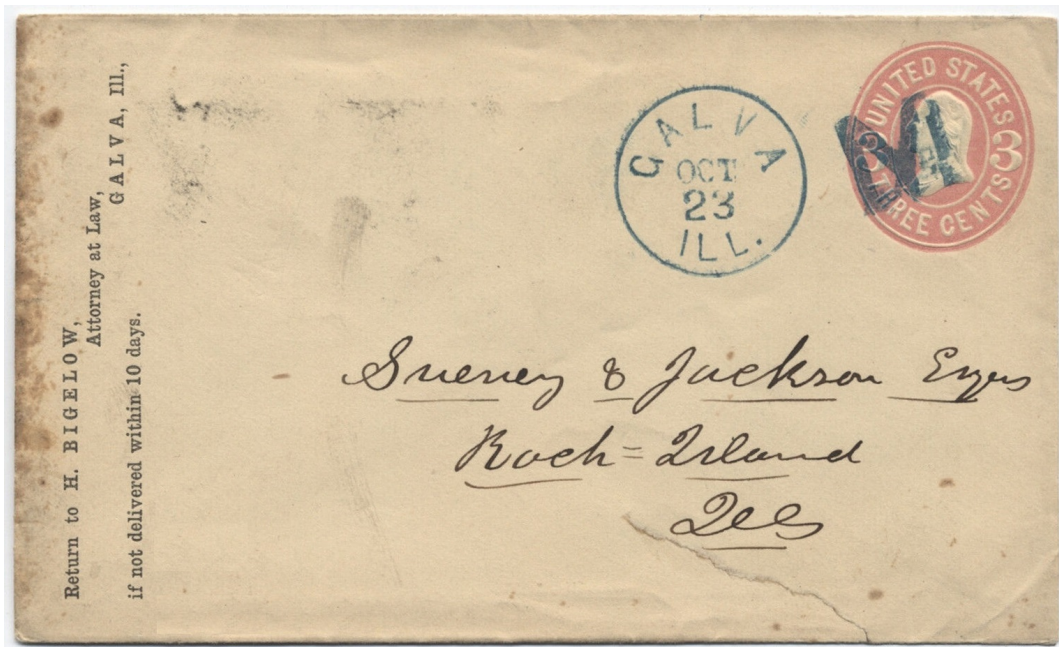 Return to H. BIGELOW,
Attorney at Law,
GALVA, Ill.,
if not delivered within 10 days.
GALVA
OCT
23
ILL.
UNITED STATES
3 3
THREE CENTS
Sweney & Jackson Esqrs
Rock = Island
Ills